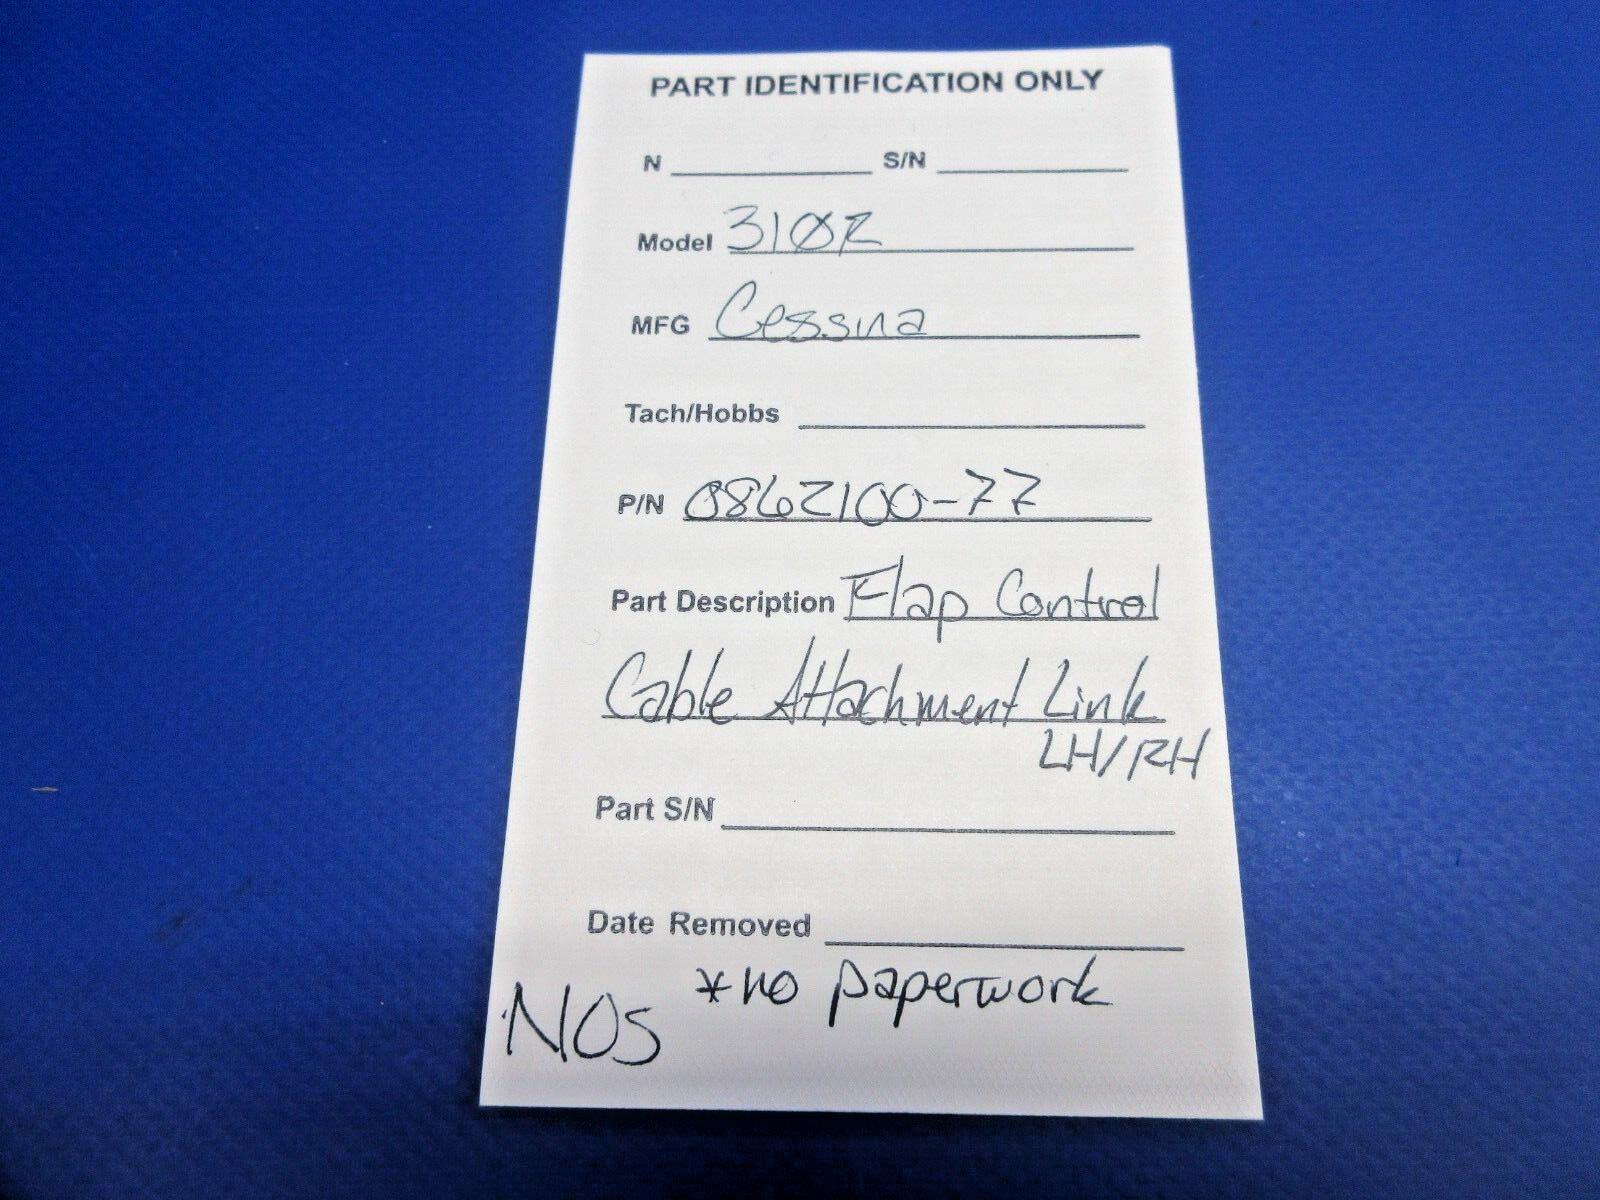 PART IDENTIFICATION ONLY
N S/N
Model 310R
MFG Cessna
Tach/Hobbs
P/N 0862100-77
Part Description Flap Control
Cable Attachment Link
LH/RH
Part S/N
Date Removed
*no paperwork
NOS